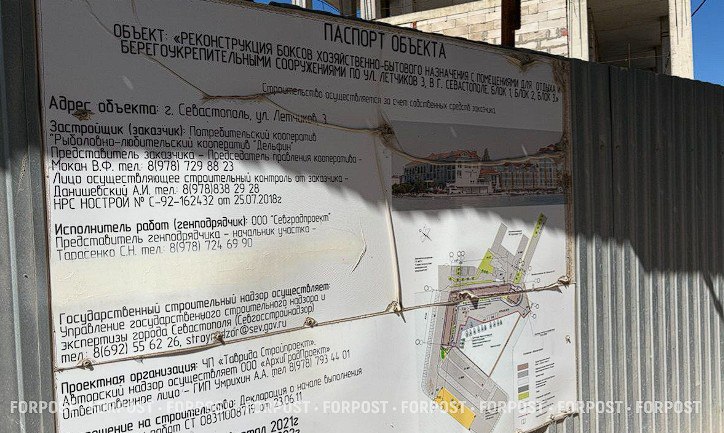 ПАСПОРТ ОБЪЕКТА
ОБЪЕКТ: «РЕКОНСТРУКЦИЯ БОКСОВ ХОЗЯЙСТВЕННО-БЫТОВОГО НАЗНАЧЕНИЯ С ПОМЕЩЕНИЯМИ ДЛЯ ОТДЫХА И
БЕРЕГОУКРЕПИТЕЛЬНЫМИ СООРУЖЕНИЯМИ ПО УЛ. ЛЕТЧИКОВ 3, В Г. СЕВАСТОПОЛЕ. БЛОК 1, БЛОК 2, БЛОК 3»
Строительство осуществляется за счет собственных средств заказчика.
Адрес объекта: г. Севастополь, ул. Летчиков 3
Застройщик (заказчик): Потребительский кооператив
"Рыболовно-любительский кооператив "Дельфин"
Представитель заказчика - Председатель правления кооператива -
Мокан В.Ф. тел.: 8(978) 729 88 23
Лицо осуществляющее строительный контроль от заказчика -
Данишевский А.И. тел.: 8(978)838 29 28
НРС НОСТРОЙ № С-92-162432 от 25.07.2018г
Исполнитель работ (генподрядчик): ООО "Севградпроект"
Представитель генподрядчика - начальник участка -
Тарасенко С.Н. тел.: 8(978) 724 69 90
Государственный строительный надзор осуществляет:
Управление государственного строительного надзора и
экспертизы города Севастополя (Севгосстройнадзор)
тел.: 8(692) 55 62 26, stroynadzor@sev.gov.ru
Проектная организация: ЧП «Таврида Стройпроект».
Авторский надзор осуществляет ООО «АрхиГрадПроект»
Ответственное лицо - ГИП Умрихин А.А. тел 8(978) 793 44 01
на строительство: Декларация о начале выполнения
работ СТ 08311008719
2021г
FORPOST · FORPOST · FORPOST · FORPOST · FORPOST · FORPOST · FORPOST · FORPOST · FORPOST